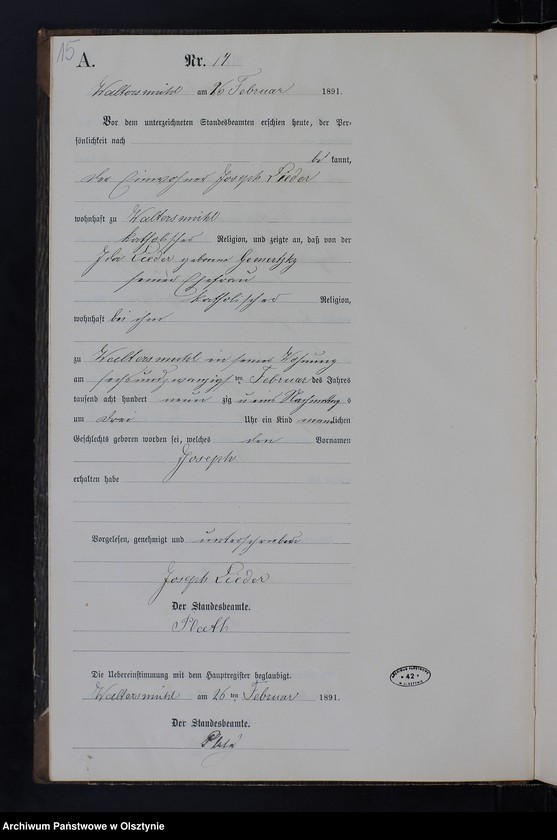 15
A. Nr. 14
Waltersmühl am 26 Februar 1891.
Vor dem unterzeichneten Standesbeamten erschien heute, der Per-
sönlichkeit nach
be kannt,
der Einwohner Joseph Lieder
wohnhaft zu Waltersmühl
katholischer Religion, und zeigte an, daß von der
Ida Lieder geborne
seiner Ehefrau
katholischer Religion,
wohnhaft bei ihm
zu Waltersmühl in seiner Wohnung
am sechsundzwanzigsten Februar des Jahres
tausend acht hundert neun zig und eins Nachmittags
um drei Uhr ein Kind männlichen
Geschlechts geboren worden sei, welches den Vornamen
Joseph
erhalten habe
Vorgelesen, genehmigt und unterschrieben
Joseph Lieder
Der Standesbeamte.
Plath
Die Uebereinstimmung mit dem Hauptregister beglaubigt.
Waltersmühl am 26 ten Februar 1891.
Der Standesbeamte.
ARCHIWUM PAŃSTWOWE
* 42 *
W OLSZTYNIE
Archiwum Państwowe w Olsztynie